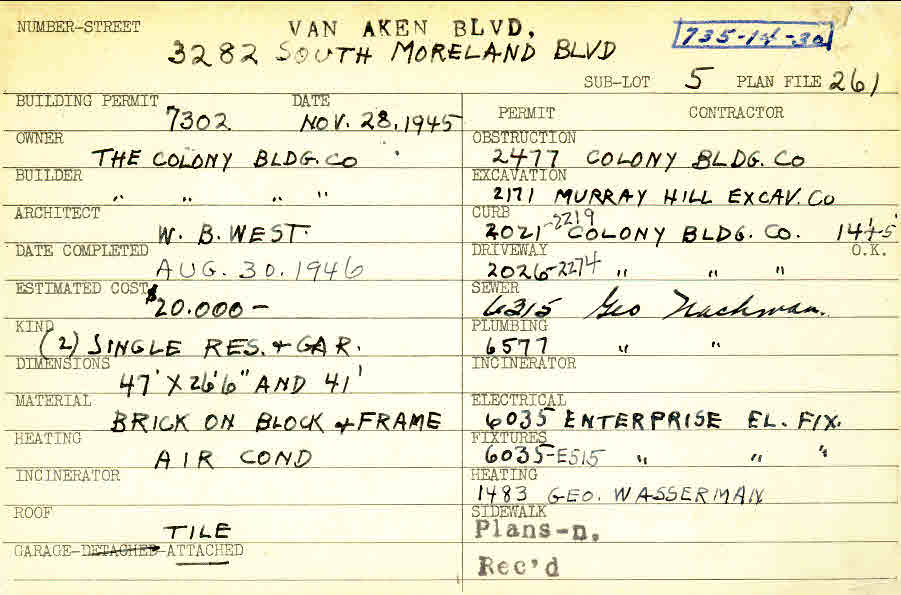 NUMBER-STREET VAN AKEN BLVD.
3282 SOUTH MORELAND BLVD
735-14-30
SUB-LOT 5 PLAN FILE 261
BUILDING PERMIT DATE
7302 NOV. 28, 1945
OWNER
THE COLONY BLDG. CO
BUILDER
" " " "
ARCHITECT
W. B. WEST.
DATE COMPLETED
AUG. 30. 1946
ESTIMATED COST
$20.000-
KIND
(2) SINGLE RES. + GAR.
DIMENSIONS
47' X 26'6" AND 41'
MATERIAL
BRICK ON BLOCK + FRAME
HEATING
AIR COND
INCINERATOR
ROOF
TILE
GARAGE-DETACHED-ATTACHED
PERMIT CONTRACTOR
OBSTRUCTION
2477 COLONY BLDG. CO
EXCAVATION
2171 MURRAY HILL EXCAV. CO
CURB
2021-2219 COLONY BLDG. CO.
DRIVEWAY O.K.
2026-2274 " " "
SEWER
6315 Geo Nachman.
PLUMBING
6577 " "
INCINERATOR
ELECTRICAL
6035 ENTERPRISE EL. FIX.
FIXTURES
6035-E515 " " "
HEATING
1483 GEO. WASSERMAN
SIDEWALK
Plans-n.
Rec'd